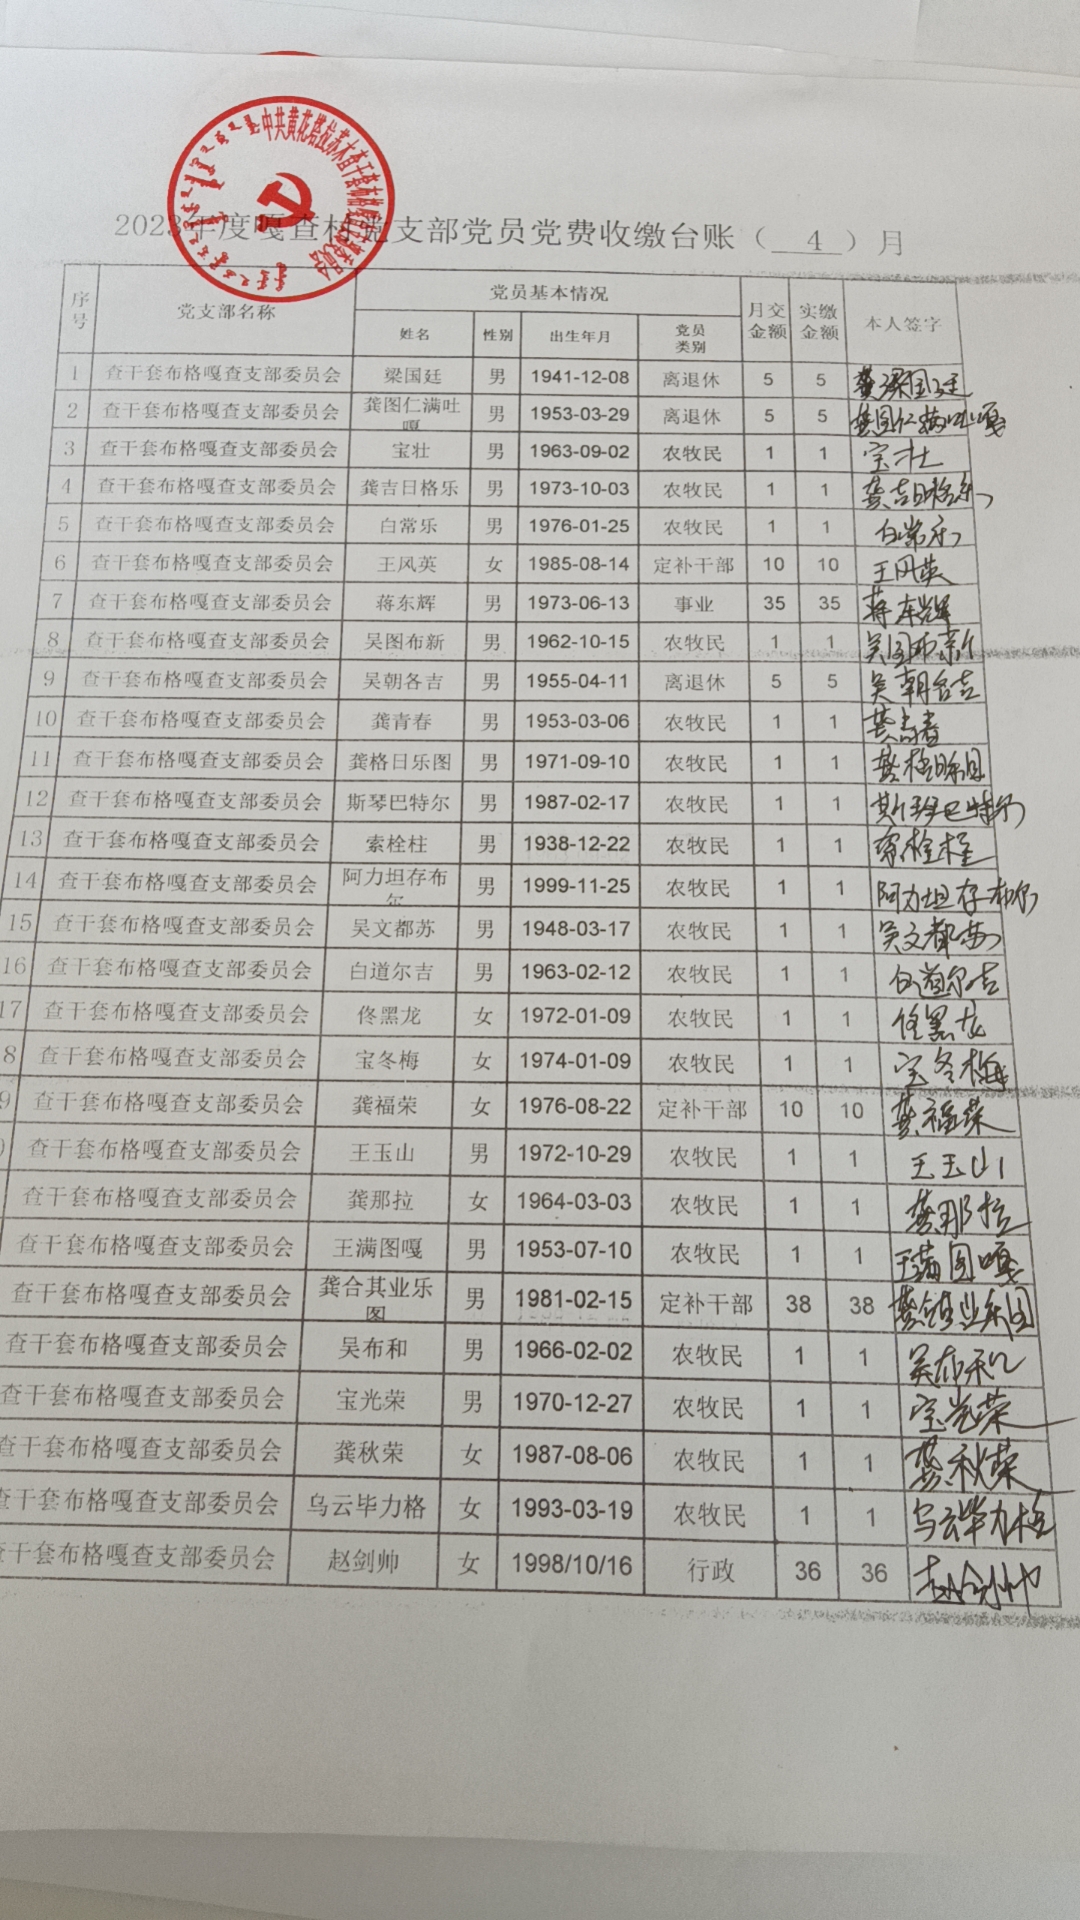 中共黄花塔拉苏木查干套布格嘎查委员会
2023年度嘎查村党支部党员党费收缴台账（ 4 ）月
序号 党支部名称 党员基本情况 月交金额 实缴金额 本人签字
姓名 性别 出生年月 党员类别
1 查干套布格嘎查支部委员会 梁国廷 男 1941-12-08 离退休 5 5 梁国廷
2 查干套布格嘎查支部委员会 龚图仁满吐嘎 男 1953-03-29 离退休 5 5 龚图仁满吐嘎
3 查干套布格嘎查支部委员会 宝壮 男 1963-09-02 农牧民 1 1 宝壮
4 查干套布格嘎查支部委员会 龚吉日格乐 男 1973-10-03 农牧民 1 1 龚吉日格乐
5 查干套布格嘎查支部委员会 白常乐 男 1976-01-25 农牧民 1 1 白常乐
6 查干套布格嘎查支部委员会 王风英 女 1985-08-14 定补干部 10 10 王风英
7 查干套布格嘎查支部委员会 蒋东辉 男 1973-06-13 事业 35 35 蒋东辉
8 查干套布格嘎查支部委员会 吴图布新 男 1962-10-15 农牧民 1 1 吴图布新
9 查干套布格嘎查支部委员会 吴朝各吉 男 1955-04-11 离退休 5 5 吴朝各吉
10 查干套布格嘎查支部委员会 龚青春 男 1953-03-06 农牧民 1 1 龚青春
11 查干套布格嘎查支部委员会 龚格日乐图 男 1971-09-10 农牧民 1 1 龚格日乐图
12 查干套布格嘎查支部委员会 斯琴巴特尔 男 1987-02-17 农牧民 1 1 斯琴巴特尔
13 查干套布格嘎查支部委员会 索栓柱 男 1938-12-22 农牧民 1 1
14 查干套布格嘎查支部委员会 阿力坦存布尔 男 1999-11-25 农牧民 1 1 阿力坦存布尔
15 查干套布格嘎查支部委员会 吴文都苏 男 1948-03-17 农牧民 1 1 吴文都苏
16 查干套布格嘎查支部委员会 白道尔吉 男 1963-02-12 农牧民 1 1 白道尔吉
17 查干套布格嘎查支部委员会 佟黑龙 女 1972-01-09 农牧民 1 1 佟黑龙
8 查干套布格嘎查支部委员会 宝冬梅 女 1974-01-09 农牧民 1 1 宝冬梅
9 查干套布格嘎查支部委员会 龚福荣 女 1976-08-22 定补干部 10 10 龚福荣
查干套布格嘎查支部委员会 王玉山 男 1972-10-29 农牧民 1 1 王玉山
查干套布格嘎查支部委员会 龚那拉 女 1964-03-03 农牧民 1 1 龚那拉
查干套布格嘎查支部委员会 王满图嘎 男 1953-07-10 农牧民 1 1 王满图嘎
查干套布格嘎查支部委员会 龚合其业乐图 男 1981-02-15 定补干部 38 38 龚合其业乐图
查干套布格嘎查支部委员会 吴布和 男 1966-02-02 农牧民 1 1 吴布和
查干套布格嘎查支部委员会 宝光荣 男 1970-12-27 农牧民 1 1 宝光荣
查干套布格嘎查支部委员会 龚秋荣 女 1987-08-06 农牧民 1 1 龚秋荣
查干套布格嘎查支部委员会 乌云毕力格 女 1993-03-19 农牧民 1 1 乌云毕力格
查干套布格嘎查支部委员会 赵剑帅 女 1998/10/16 行政 36 36 赵剑帅